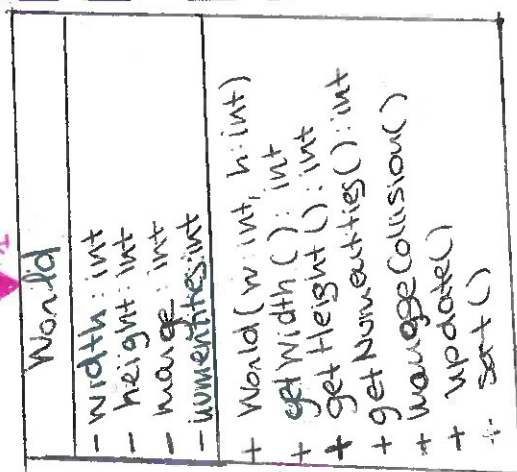 World
- width : int
- height : int
- marge : int
- numentites : int
+ World( w : int, h : int)
+ getWidth() : int
+ getHeight() : int
+ getNumentties() : int
+ manageCollision()
+ update()
+ sort()